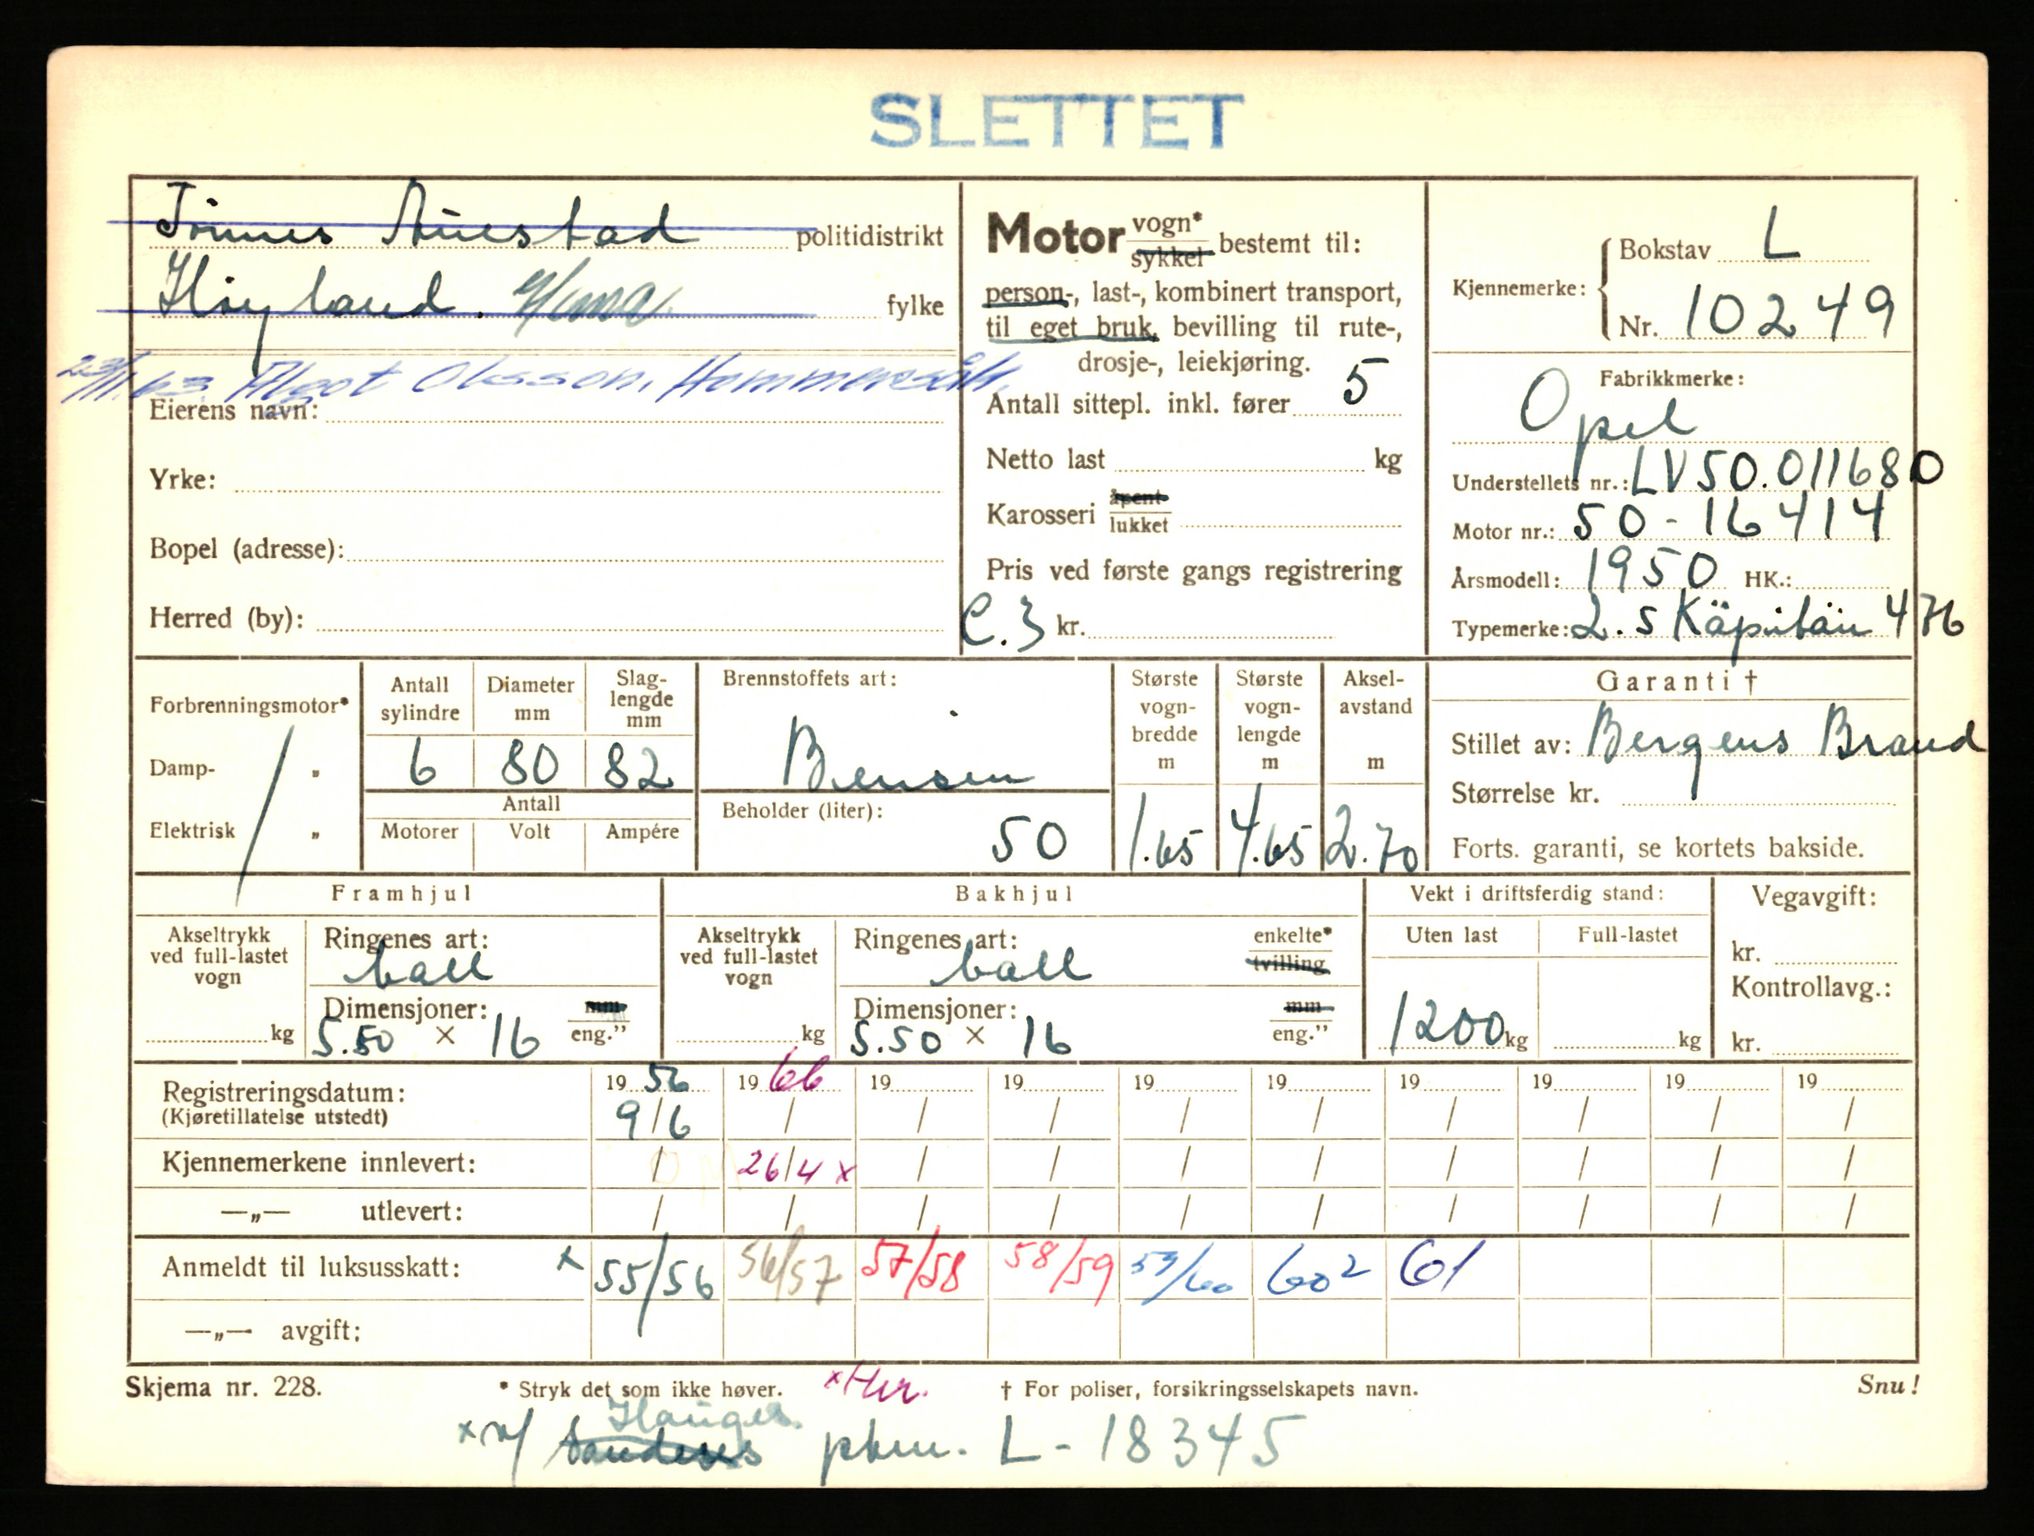 SLETTET
Tønnes Auestad politidistrikt
Høyland. fylke
23/1.63. Algot Olsson, Hammersålt.
Eierens navn:
Yrke:
Bopel (adresse):
Herred (by):
Motor vogn* sykkel bestemt til:
person-, last-, kombinert transport,
til eget bruk, bevilling til rute-,
drosje-, leiekjøring.
Antall sittepl. inkl. fører 5
Netto last kg
Karosseri åpent lukket
Pris ved første gangs registrering
C.3 kr.
Kjennemerke: Bokstav L
Nr. 10249
Fabrikkmerke:
Opel
Understellets nr.: LV50.011680
Motor nr.: 50-16414
Årsmodell: 1950 HK.:
Typemerke: 2.5 Käpitän 476
Forbrenningsmotor*
Damp- "
Elektrisk "
Antall sylindre Diameter mm Slag-lengde mm
6 80 82
Antall
Motorer Volt Ampére
Brennstoffets art:
Bensin
Beholder (liter):
50
Største vogn-bredde m
1.65
Største vogn-lengde m
4.65
Aksel-avstand m
2.70
Garanti †
Stillet av: Bergens Brand
Størrelse kr.
Forts. garanti, se kortets bakside.
Framhjul
Akseltrykk ved full-lastet vogn
kg
Ringenes art:
ball
Dimensjoner: mm
5.50 × 16 eng."
Bakhjul
Akseltrykk ved full-lastet vogn
kg
Ringenes art: enkelte*
ball tvilling
Dimensjoner: mm
5.50 × 16 eng."
Vekt i driftsferdig stand:
Uten last Full-lastet
1200 kg kg
Vegavgift:
kr.
Kontrollavg.:
kr.
Registreringsdatum: 19 56 19 66 19 19 19 19 19 19 19 19
(Kjøretillatelse utstedt) 9/6 / / / / / / / / /
Kjennemerkene innlevert: / 26/4 x / / / / / / / /
—„— utlevert: / / / / / / / / / /
Anmeldt til luksusskatt: x 55/56 56/57 57/58 58/59 59/60 60² 61
—„— avgift:
Skjema nr. 228. * Stryk det som ikke høver. x Her. † For poliser, forsikringsselskapets navn. Snu!
Hauges
x v/ Sandens pkm. L-18345